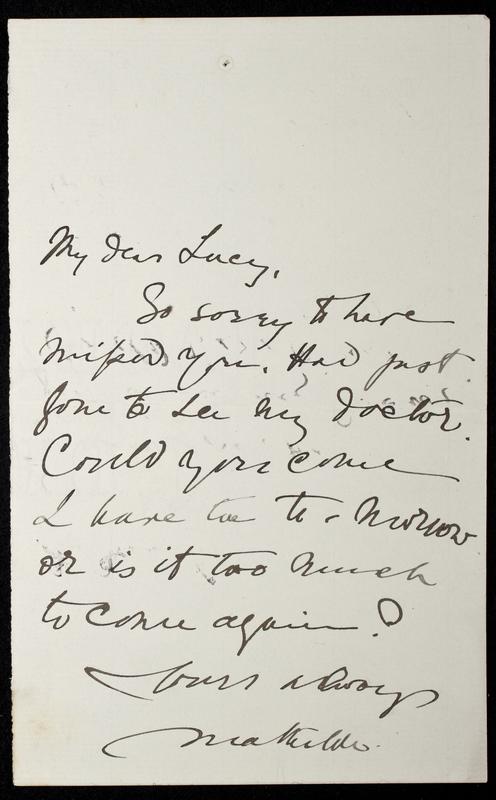 My dear Lucy,
So sorry to have
missed you. Had just
gone to see my doctor.
Could you come
& have tea to-morrow
or is it too much
to come again?
Yours always
Mathilde.